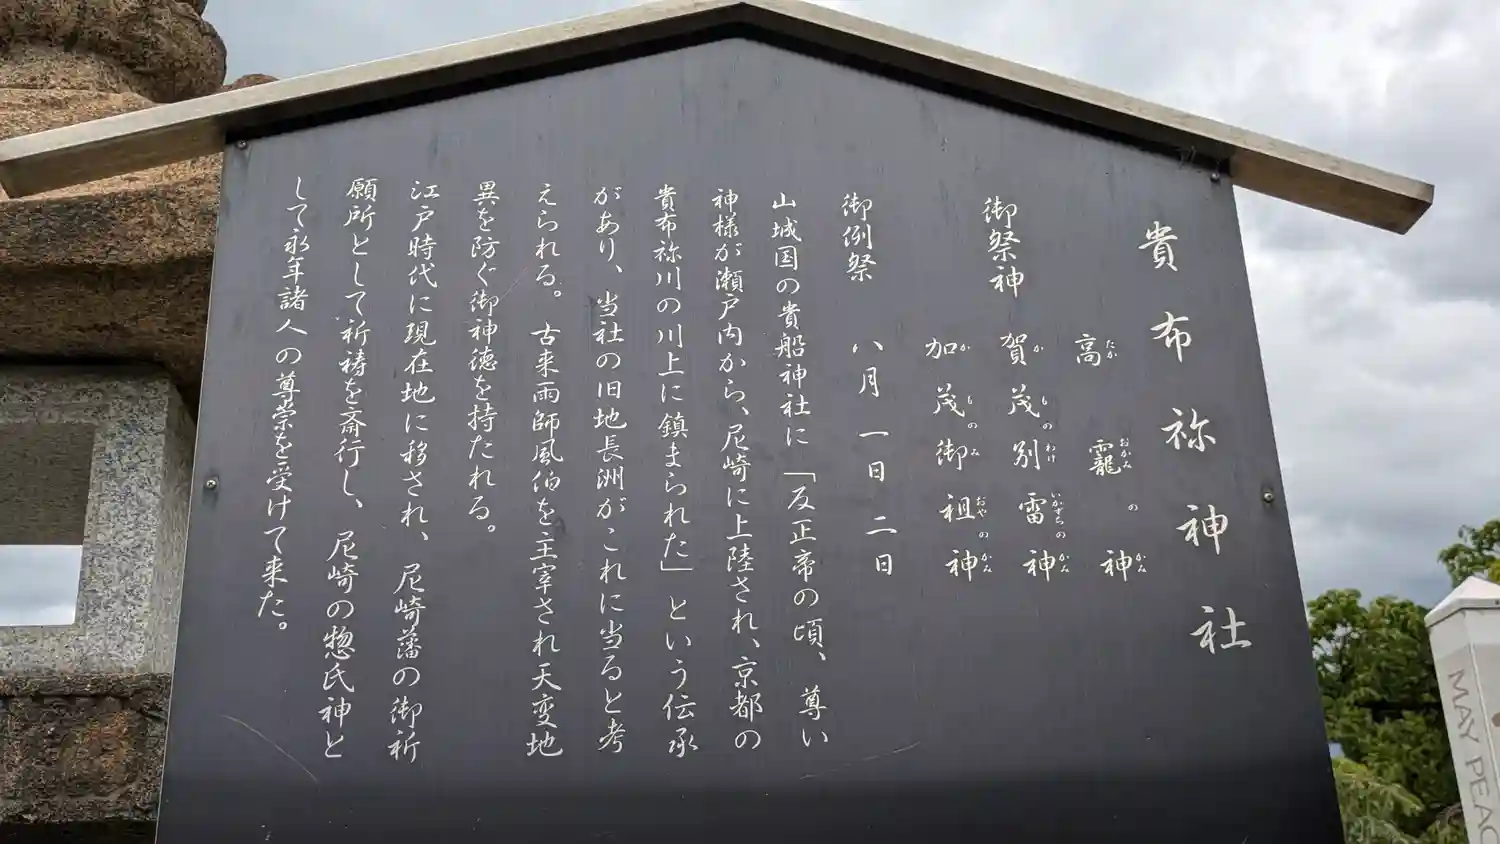 貴布祢神社
御祭神
高龗の神
たかおかみのかみ
賀茂別雷神
かものわけいかずちのかみ
加茂御祖神
かものみおやのかみ
御例祭 八月一日 二日
山城国の貴船神社に「反正帝の頃、尊い
神様が瀬戸内から、尼崎に上陸され、京都の
貴布祢川の川上に鎮まられた」という伝承
があり、当社の旧地長洲がこれに当ると考
えられる。古来雨師風伯を主宰され天変地
異を防ぐ御神徳を持たれる。
江戸時代に現在地に移され、尼崎藩の御祈
願所として祈祷を斎行し、尼崎の惣氏神と
して永年諸人の尊崇を受けて来た。
MAY PEAC